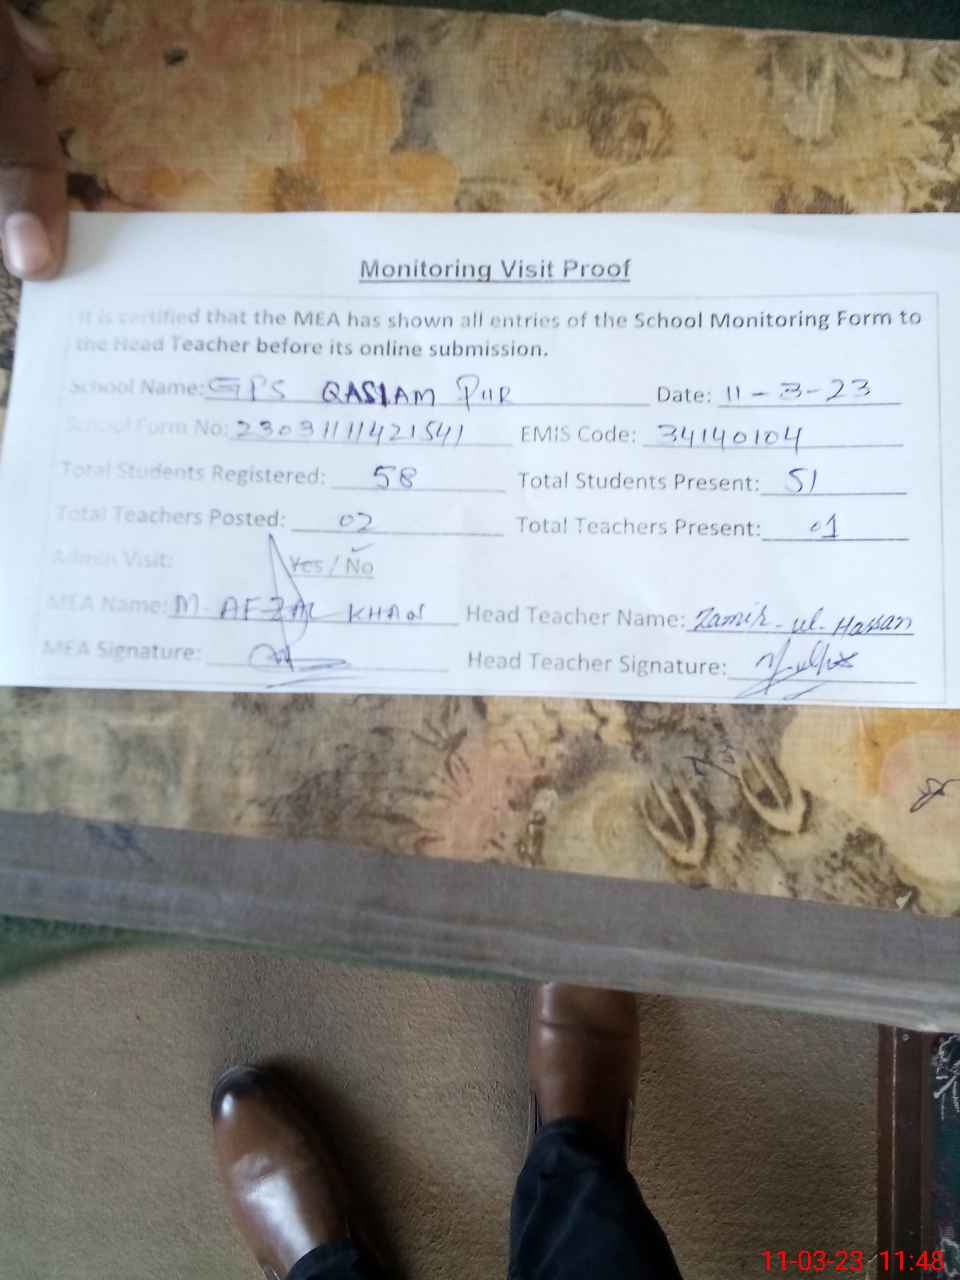 Monitoring Visit Proof
It is certified that the MEA has shown all entries of the School Monitoring Form to
the Head Teacher before its online submission.
School Name: GPS QASIAM PUR Date: 11-3-23
School Form No: 23031111421541 EMIS Code: 34140104
Total Students Registered: 58 Total Students Present: 51
Total Teachers Posted: 02 Total Teachers Present: 01
Admin Visit: Yes / No
MEA Name: M. AFZAL KHAN Head Teacher Name: Zamir-ul-Hassan
MEA Signature: Head Teacher Signature:
11-03-23 11:48